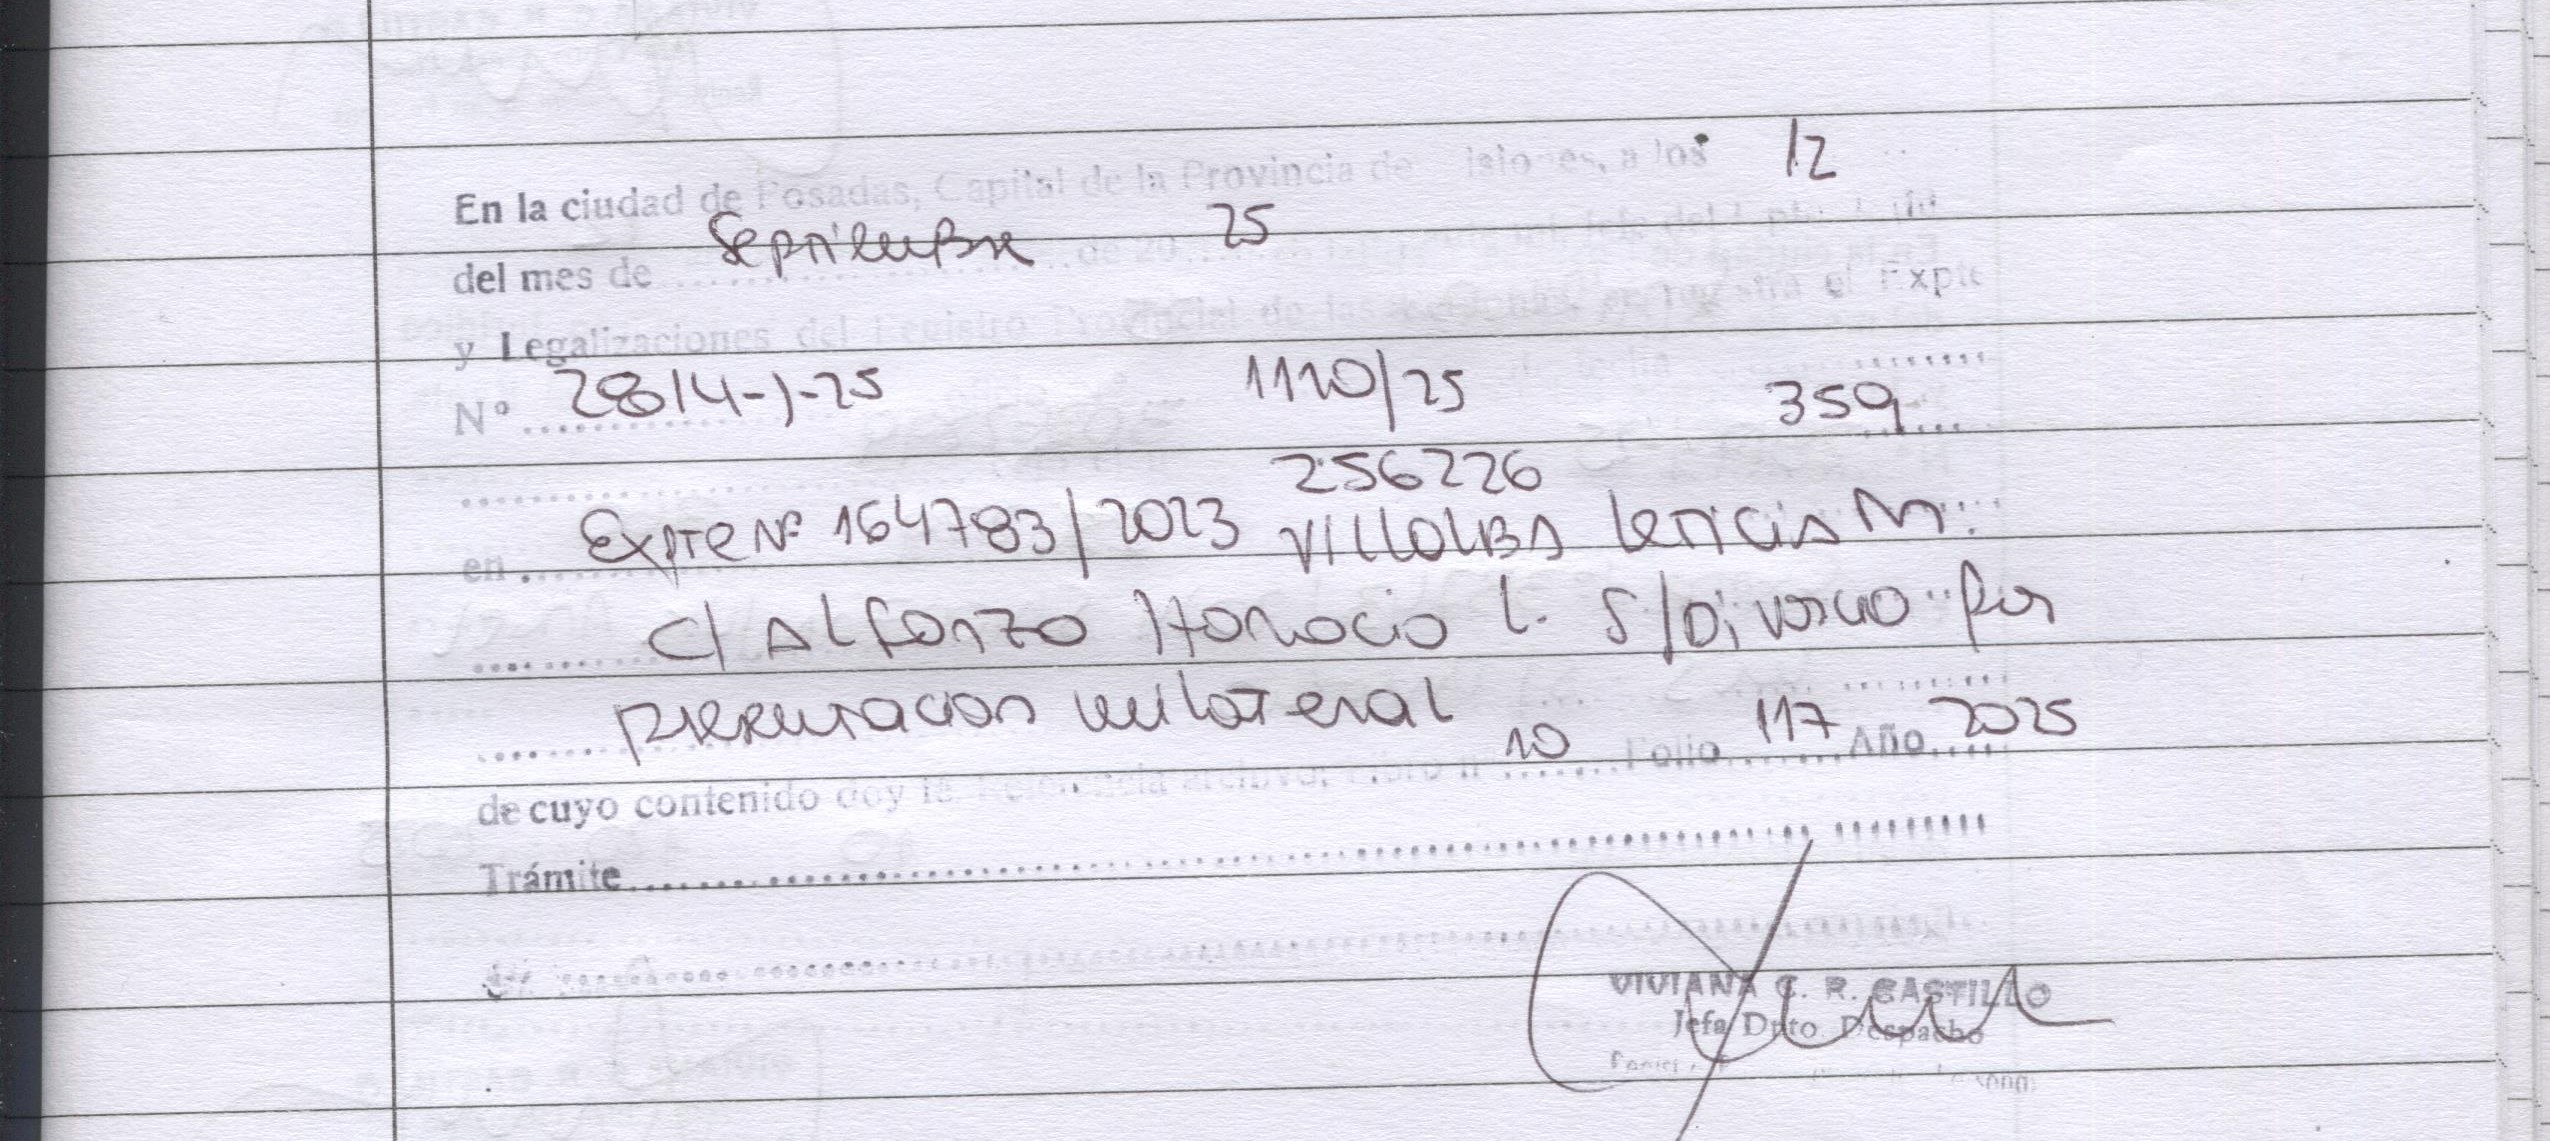 En la ciudad de Posadas, Capital de la Provincia de isiones, a los 12
del mes de Septiembre de 20 25
y Legalizaciones del Registro Provincial de las el Expte
N° 2814-J-25 1120/25 359
256226
en Expte Nº 164783/2023 VILLALBA Leticia M.
c/ Alfonzo Horacio L. S/Divorcio por
presentacion unilateral
de cuyo contenido doy fe. Referencia archivo: Libro n 10 Folio 117 Año 2025
Trámite
VIVIANA C. R. CASTILLO
Jefa Dpto. Despacho